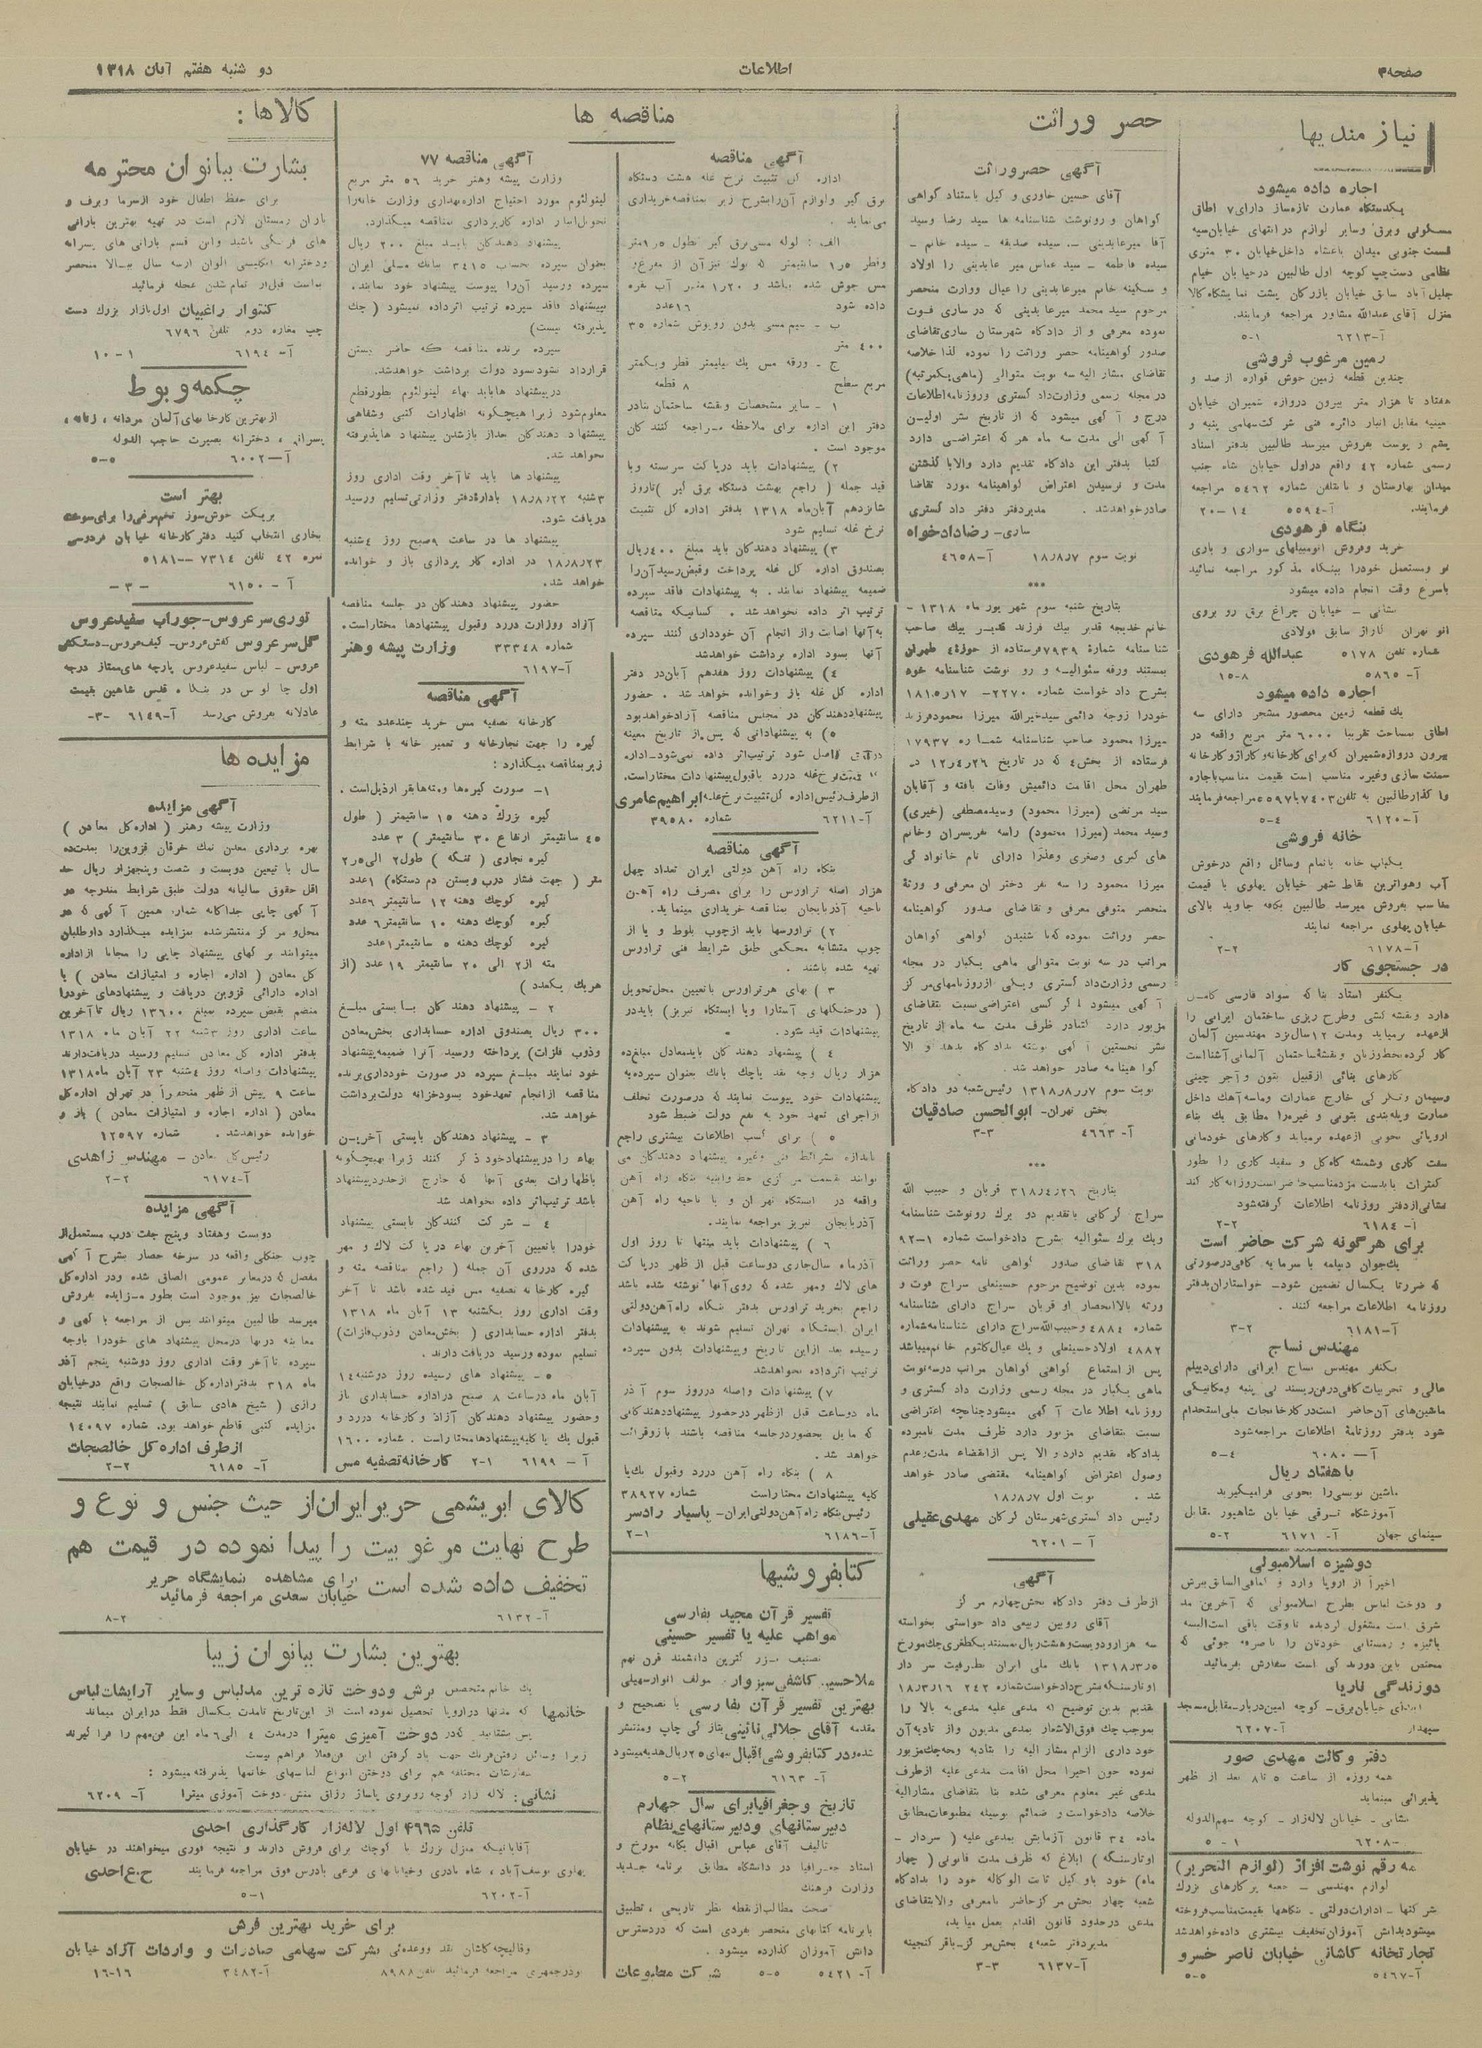 صفحه ۳
اطلاعات
دو شنبه هفتم آبان ۱۳۱۸
نیاز مندیها
اجاره داده میشود
یکدستگاه عمارت تازه‌ساز دارای ۷ اطاق
مسکونی وبرق وسایر لوازم در انتهای خیابان سپه
قسمت جنوبی میدان باغشاه داخل خیابان ۳۰ متری
نظامی دست چپ کوچه اول طالبین در خیابان خیام
جلیل آباد سابق خیابان بازرگان پشت نمایشگاه کالا
منزل آقای عبدالله مشاور مراجعه فرمایند.
آ-۶۲۱۳ ۱-۵
زمین مرغوب فروشی
چندین قطعه زمین خوش قواره از صد و
هفتاد تا هزار متر بیرون دروازه شمیران خیابان
عینیه مقابل انبار دائره فنی شرکت سهامی پنبه و
پشم و پوست بفروش میرسد طالبین بدفتر اسناد
رسمی شماره ۴۲ واقع در اول خیابان شاه جنب
میدان بهارستان و با تلفن شماره ۵۴۶۲ مراجعه
فرمایند. آ-۵۵۹۴ ۱۴-۲۰
بنگاه فرهودی
خرید وفروش اتومبیلهای سواری و باری
نو ومستعمل خودرا ببنگاه مذکور مراجعه نمائید
باسرع وقت انجام داده میشود
نشانی - خیابان چراغ برق رو بروی
اتو تهران گاراژ سابق فولادی
شماره تلفن ۵۱۷۸ عبدالله فرهودی
آ-۵۸۶۵ ۸-۱۵
اجاره داده میشود
یك قطعه زمین محصور مشجر دارای سه
اطاق بمساحت تقریبا ۶۰۰۰ متر مربع واقعه در
بیرون دروازه شمیران که برای کارخانه وکاراژ وکارخانه
سمنت سازی وغیره مناسب است بقیمت مناسب باجاره
واگذار طالبین به تلفن ۷۴۰۳ یا ۵۹۷ مراجعه فرمایند
آ-۶۱۲۰ ۴-۵
خانه فروشی
یکباب خانه باتمام وسائل واقع در خوش
آب وهواترین نقاط شهر خیابان پهلوی با قیمت
مناسب بفروش میرسد طالبین بکافه جاوید بالای
خیابان پهلوی مراجعه نمایند
آ-۶۱۷۸ ۲-۲
در جستجوی کار
یکنفر استاد بنا که سواد فارسی کامل
دارد ونقشه کشی وطرح ریزی ساختمان ایرانی را
ازعهده برمیاید ومدت ۱۲ سال نزد مهندسین آلمان
کار کرده بخط وزبان ونقشهٔ ساختمان آلمانی آشنا است
کارهای بنائی ازقبیل بتون و آجر چینی
عمارت وپله‌بندی بتونی و غیره را مطابق یك بناء
اروپائی بخوبی ازعهده برمیاید وکارهای خودمانی
سفت کاری وشمشه کاه‌گل و سفید کاری را بطور
کنترات یا بدست مزد مناسب حاضر است روزانه کار کند
نشانی از دفتر روزنامه اطلاعات گرفته‌شود
آ-۶۱۸۴ ۲-۲
برای هرگونه شرکت حاضر است
یکجوان دیپلمه با سرمایه کافی در صورتی
که ضرر تا یکسال تضمین شود - خواستاران بدفتر
روزنامه اطلاعات مراجعه کنند.
آ-۶۱۸۱ ۲-۳
مهندس نساج
یکنفر مهندس نساج ایرانی دارای دیپلم
عالی و تجربیات کافی در فن ریسندگی پنبه ومکانیکی
ماشین‌های آن حاضر است در کارخانجات ملی استخدام
شود بدفتر روزنامهٔ اطلاعات مراجعه شود
آ-۶۰۸۰ ۴-۵
با هفتاد ریال
ماشین نویسی را بخوبی فرا میگیرید
آموزشگاه ترقی خیابان شاهپور مقابل
سینمای جهان آ-۶۱۷۱ ۲-۵
دوشیزه اسلامبولی
اخیراً از اروپا وارد و کمافی السابق ببرش
و دوخت لباس بطرح اسلامبولی که آخرین مد
شرق است مشغول گردیده تا وقت باقی است البسه
پائیزه و زمستانی خودتان را باصرفه جوئی که
مختص باین دوزندگی است سفارش بفرمائید
دوزندگی ناریا
ابتدای خیابان برق - کوچه امین دربار - مقابل مسجد
سپهدار آ-۶۲۰۷
دفتر وکالت مهدی صور
همه روزه از ساعت ۵ تا ۸ بعد از ظهر
پذیرائی مینماید
نشانی - خیابان لاله‌زار - کوچه سهم‌الدوله
-۶۲۰۸ ۱-۵
مه رقم نوشت افزار (لوازم التحریر)
لوازم مهندسی - جعبه پرگارهای بزرك
شرکتها - ادارات دولتی - بنگاهها بقیمت مناسب فروخته
میشود بدانش آموزان تخفیف بیشتری داده خواهد شد
تجارتخانه کاشانی خیابان ناصر خسرو
آ-۵۴۶۷ ۵-۵
حصر وراثت
آگهی حصر وراثت
آقای حسین خاوری و کیل باستناد گواهی
گواهان و رونوشت شناسنامه ها سید رضا وسید
آقا میرعابدینی - سیده صدیقه - سیده خانم -
سیده فاطمه - سید عباس میر عابدینی را اولاد
و سکینه خانم میرعابدینی را عیال ووارث منحصر
مرحوم سید محمد میرعابدینی که در ساری فوت
نموده معرفی و از دادگاه شهرستان ساری تقاضای
صدور گواهینامه حصر وراثت را نموده لذا خلاصه
تقاضای مشار الیه سه نوبت متوالی (ماهی یکمرتبه)
در مجله رسمی وزارت داد گستری وروزنامه اطلاعات
درج و آگهی میشود که از تاریخ نشر اولین
آ گهی الی مدت سه ماه هر که اعتراضی دارد
کتبا بدفتر این دادگاه تقدیم دارد والا با گذشتن
مدت و نرسیدن اعتراض گواهینامه مورد تقاضا
صادر خواهد شد. مدیر دفتر داد گستری
ساری - رضا دادخواه
نوبت سوم ۱۸٫۸٫۷ آ-۴۶۵۸
***
بتاریخ شنبه سوم شهریور ماه ۱۳۱۸ -
خانم خدیجه قدیر بیك فرزند قدیر بیك صاحب
شناسنامه شمارهٔ ۷۹۳۹ فرستاده از حوزه ۴ طهران
بمستند ورقه سئوالیه و رو نوشت شناسنامه خود
بشرح داد خواست شماره ۲۲۷۰-۱۸٫۵٫۱۷
خودرا زوجه دائمی سید خیرالله میرزا محمود فرزند
میرزا محمود صاحب شناسنامه شماره ۱۷۹۳۷
فرستاده از بخش ۴ که در تاریخ ۱۲٫۴٫۲۶ در
طهران محل اقامت دائمیش وفات یافته و آقایان
سید مرتضی (میرزا محمود) وسید مصطفی (خیری)
وسید محمد (میرزا محمود) را سه نفر پسران وخانم
های کبری وصغری وعذرا دارای نام خانوادگی
میرزا محمود را سه نفر دختران معرفی و ورثهٔ
منحصر متوفی معرفی و تقاضای صدور گواهینامه
حصر وراثت نموده که با شنیدن گواهی گواهان
مراتب در سه نوبت متوالی ماهی یکبار در مجله
رسمی وزارت داد گستری ویکی از روزنامه‌های مرکز
آگهی میشود اگر کسی اعتراضی نسبت بتقاضای
مزبور دارد کتبا در ظرف مدت سه ماه از تاریخ
نشر نخستین آگهی نوشته بدادگاه بدهد و الا
گواهینامه صادر خواهد شد.
نوبت سوم ۱۳۱۸٫۸٫۷ رئیس شعبه دو دادگاه
بخش تهران - ابوالحسن صادقیان
آ-۴۶۶۳ ۳-۳
***
بتاریخ ۳۱۸٫۴٫۲۶ قربان و حبیب الله
سراج گرگانی با تقدیم دو برك رونوشت شناسنامه
ویك برك سئوالیه بشرح دادخواست شماره ۱-۹۲
۳۱۸ تقاضای صدور گواهی نامه حصر وراثت
نموده بدین توضیح مرحوم حسینعلی سراج فوت و
ورثه بالانحصار او قربان سراج دارای شناسنامه
شماره ۴۸۸۴ وحبیب‌الله سراج دارای شناسنامه شماره
۴۸۸۲ اولاد حسینعلی و یك عیال کلثوم خانم میباشد
پس از استماع گواهی گواهان مراتب در سه نوبت
ماهی یکبار در مجله رسمی وزارت داد گستری و
روزنامه اطلاعات آگهی میشود چنانچه اعتراضی
نسبت بتقاضای مزبور دارد ظرف مدت نامبرده
بدادگاه تقدیم دارد والا پس از انقضاء مدت وعدم
وصول اعتراض گواهینامه مقتضی صادر خواهد
شد. نوبت اول ۱۸٫۸٫۷
رئیس داد گستری شهرستان گرگان مهدی عقیلی
آ - ۶۲۰۱
آگهی
از طرف دفتر دادگاه بخش چهارم مرکز
آقای روبین ربیعی داد خواستی بخواسته
سه هزار ودویست وهشت ریال بمستند یکطغری چك مورخ
۱۳۱۸٫۳٫۵ بانك ملی ایران بطرفیت سردار
اوتارسنگه بشرح دادخواست شماره ۲۴۲ ۱۸٫۳٫۱۶
تقدیم بدین توضیح که مدعی علیه مدعی به بالا را
بموجب چك فوق الاشعار بمدعی مدیون و از تادیه آن
خود داری الزام مشار الیه را بتادیه وجه چك مزبور
نموده چون اخیرا محل اقامت مدعی علیه از طرف
مدعی غیر معلوم معرفی شده بنا بتقاضای مشارالیه
خلاصه دادخواست و ضمائم بوسیله مطبوعات مطابق
ماده ۳۴ قانون آزمایش بمدعی علیه (سردار -
اوتارسنگه) ابلاغ که ظرف مدت قانونی (چهار
ماه) خود یا وکیل ثابت الوکاله خود را بدادگاه
شعبه چهار بخش مرکز حاضر یا معرفی والا بتقاضای
مدعی در حدود قانون اقدام بعمل میاید.
مدیر دفتر شعبه ۴ بخش مرکز - باقر گنجینه
آ-۶۱۳۷ ۳-۳
مناقصه ها
آگهی مناقصه
اداره کل تثبیت نرخ غله هشت دستگاه
برق گیر ولوازم آن را بشرح زیر بمناقصه خریداری
می‌نماید
الف: لوله مسی برق گیر بطول ۹٫۵ متر
مس جوش شده باشد و ۱٫۲۰ متر آب نقره
داده شود ۱۶ عدد
ب - سیم مسی بدون روپوش شماره ۳۵
۴۰۰ متر
ج - ورقه مس یك میلیمتر قطر ویکمتر
مربع سطح ۸ قطعه
۱ - سایر مشخصات ونقشه ساختمان بنادر
دفتر این اداره برای ملاحظه مراجعه کنندگان
موجود است.
۲) پیشنهادات باید در پاکت سربسته وبا
قید جمله (راجع بهشت دستگاه برق گیر) تا روز
شانزدهم آبان‌ماه ۱۳۱۸ بدفتر اداره کل تثبیت
نرخ غله تسلیم شود
۳) پیشنهاد دهندگان باید مبلغ ۴۰۰ ریال
بصندوق اداره کل غله پرداخت وقبض رسید آن را
ضمیمه پیشنهاد نمایند. به پیشنهادات فاقد سپرده
ترتیب اثر داده نخواهد شد. کسانیکه مناقصه
به آنها اصابت واز انجام آن خودداری کنند سپرده
آنها بسود اداره برداشت خواهد شد
۴) پیشنهادات روز هفدهم آبان در دفتر
اداره کل غله باز وخوانده خواهد شد. حضور
پیشنهاد دهندگان در مجلس مناقصه آزاد خواهد بود
۵) به پیشنهاداتی که پس از تاریخ معینه
واصل شود ترتیب اثر داده نمی‌شود - اداره
تثبیت نرخ غله در رد یا قبول پیشنهادات مختار است.
از طرف رئیس اداره کل تثبیت نرخ غله ابراهیم عامری
آ-۶۲۱۱ شماره ۳۹۵۸۰
آگهی مناقصه
بنگاه راه آهن دولتی ایران تعداد چهل
هزار اصله تراورس را برای مصرف راه آهن
ناحیه آذربایجان بمناقصه خریداری مینماید.
۲) تراورسها باید از چوب بلوط و یا از
چوب متشابه محکمی طبق شرایط فنی تراورس
تهیه شده باشند.
۳) بهای هر تراورس با تعیین محل تحویل
(در جنگلهای آستارا ویا ایستگاه تبریز) باید در
پیشنهادات قید شود.
۴) پیشنهاد دهندگان باید معادل مبلغ ده
هزار ریال وجه نقد یا چك بانك بعنوان سپرده به
پیشنهادات خود پیوست نمایند که در صورت تخلف
از اجرای تعهد خود به نفع دولت ضبط شود
۵) برای کسب اطلاعات بیشتری راجع
باندازه شرائط فنی وغیره پیشنهاد دهندگان می
توانند بقسمت مرکزی خط وابنیه بنگاه راه آهن
واقعه در ایستگاه تهران و یا ناحیه راه آهن
آذربایجان تبریز مراجعه نمایند.
۶) پیشنهادات باید منتها تا روز اول
آذر ماه سال جاری دو ساعت قبل از ظهر در پاکت
های لاك ومهر شده که روی آنها نوشته شده باشد
راجع بخرید تراورس بدفتر بنگاه راه آهن دولتی
ایران ایستگاه تهران تسلیم شوند به پیشنهادات
رسیده بعد از این تاریخ وپیشنهادات بدون سپرده
ترتیب اثر داده نخواهد شد
۷) پیشنهادات واصله در روز سوم آذر
ماه دو ساعت قبل از ظهر در حضور پیشنهاد دهندگانی
که مایل بحضور در جلسه مناقصه باشند باز وقرائت
خواهد شد.
۸) بنگاه راه آهن در رد وقبول یك یا
کلیه پیشنهادات مختار است شماره ۳۸۹۲۷
رئیس بنگاه راه آهن دولتی ایران - پاسیار رادسر
آ-۶۱۸۶ ۱-۲
کتابفروشیها
تفسیر قرآن مجید بفارسی
مواهب علیه یا تفسیر حسینی
تصنیف بزرگترین دانشمند قرن نهم
ملاحسین کاشفی سبزوار. مولف انوار سهیلی
بهترین تفسیر قرآن بفارسی با تصحیح و
مقدمه آقای جلالی نائینی بتازگی چاپ ومنتشر
شده در کتابفروشی اقبال ببهای ۲۵ ریال هدیه میشود
آ-۶۱۶۳ ۲-۵
تاریخ وجغرافیا برای سال چهارم
دبیرستانهای ودبیرستانهای نظام
تألیف آقای عباس اقبال یگانه مورخ و
استاد جغرافیا در دانشگاه مطابق برنامه جدید
وزارت فرهنك
صحت مطالب از نقطه نظر تاریخی، تطبیق
با برنامه کتابهای منحصر بفردی است که در دسترس
دانش آموزان گذارده میشود.
آ-۵۴۲۱ ۵-۵ شرکت مطبوعات
آگهی مناقصه ۷۷
وزارت پیشه وهنر خرید ۵۶ متر مربع
لینولئوم مورد احتیاج اداره بهداری وزارت خانه را
تحویل انبار اداره کارپردازی بمناقصه میگذارد.
پیشنهاد دهندگان باید مبلغ ۲۰۰ ریال
بعنوان سپرده بحساب ۳۴۱۵ ببانك ملی ایران
سپرده ورسید آن را پیوست پیشنهاد خود نمایند.
پیشنهاد فاقد سپرده ترتیب اثر داده نمیشود (چك
پذیرفته نیست)
سپرده برنده مناقصه که حاضر ببستن
قرارداد نشود بسود دولت برداشت خواهد شد.
در پیشنهادها باید بهاء لینولئوم بطور قطع
معلوم شود زیرا هیچگونه اظهارات کتبی وشفاهی
پیشنهاد دهندگان بعد از باز شدن پیشنهادها پذیرفته
نخواهد شد.
پیشنهادها باید تا آخر وقت اداری روز
۳شنبه ۱۸٫۸٫۲۲ بادارهٔ دفتر وزارتی تسلیم ورسید
دریافت شود.
پیشنهادها در ساعت ۹ صبح روز ۴شنبه
۱۸٫۸٫۲۳ در اداره کارپردازی باز و خوانده
خواهد شد.
حضور پیشنهاد دهندگان در جلسه مناقصه
آزاد ووزارت در رد وقبول پیشنهادها مختار است.
شماره ۳۳۳۴۸ وزارت پیشه وهنر
آ-۶۱۹۷
آگهی مناقصه
کارخانه تصفیه مس خرید چند عدد مته و
گیره را جهت نجارخانه و تعمیر خانه با شرایط
زیر بمناقصه میگذارد:
۱- صورت گیره‌ها ومته‌ها بقرار ذیل است.
گیره بزرك دهنه ۱۵ سانتیمتر (طول
۴۵ سانتیمتر ارتفاع ۳۰ سانتیمتر) ۳ عدد
گیره نجاری (تنگه) طول ۲ الی ۲٫۵
متر (جهت فشار درب وبستن دم دستگاه) ۱ عدد
گیره کوچك دهنه ۱۲ سانتیمتر ۶ عدد
گیره کوچك دهنه ۱۰ سانتیمتر ۶ عدد
گیره کوچك دهنه ۵ سانتیمتر ۱ عدد
مته از ۲ الی ۲۰ سانتیمتر ۱۹ عدد (از
هریك یکعدد)
۲ - پیشنهاد دهندگان بایستی مبلغ
۳۰۰ ریال بصندوق اداره حسابداری بخش معادن
وذوب فلزات) پرداخته ورسید آنرا ضمیمه پیشنهاد
خود نمایند مبلغ سپرده در صورت خودداری برنده
مناقصه از انجام تعهد خود بسود خزانه دولت برداشت
خواهد شد.
۳ - پیشنهاد دهندگان بایستی آخرین
بهاء را در پیشنهاد خود ذکر کنند زیرا بهیچگونه
باظهارات بعدی آنها که خارج از حدود پیشنهاد
باشد ترتیب اثر داده نخواهد شد
۴ - شرکت کنندگان بایستی پیشنهاد
خودرا با تعیین آخرین بهاء در پاکت لاك و مهر
شده که در روی آن جمله (راجع بمناقصه مته و
گیره کارخانه تصفیه مس قید شده باشد تا آخر
وقت اداری روز یکشنبه ۱۳ آبان ماه ۱۳۱۸
بدفتر اداره حسابداری (بخش معادن وذوب فلزات)
تسلیم نموده ورسید دریافت دارند.
۵ - پیشنهادهای رسیده روز دوشنبه ۱۴
آبان ماه در ساعت ۸ صبح در اداره حسابداری باز
وحضور پیشنهاد دهندگان آزاد وکارخانه در رد و
قبول یك یا کلیه پیشنهادها مختار است. شماره ۱۶۰۰
آ - ۶۱۹۹ ۱-۲ کارخانه تصفیه مس
کالاها:
بشارت ببانوان محترمه
برای حفظ اطفال خود از سرما وبرف و
باران زمستان لازم است در تهیه بهترین بارانی
های فرنگی باشید واین قسم بارانی های پسرانه
ودخترانه انگلیسی الوان از سه سال ببالا منحصر
بماست قبل از تمام شدن عجله فرمائید
کنتوار راغبیان اول بازار بزرك دست
چپ مغازه دوم تلفن ۶۷۹۶
آ-۶۱۹۴ ۱-۱۰
چکمه وبوط
از بهترین کارخانهای آلمان مردانه، زنانه،
پسرانه، دخترانه بصیرت حاجب الدوله
آ-۶۰۰۲ ۵-۵
بهتر است
بریکت خوش‌سوز تخم‌مرغی را برای سوخت
بخاری انتخاب کنید دفتر کارخانه خیابان فردوسی
نمره ۴۲ تلفن ۷۳۱۴-۵۱۸۱
آ-۶۱۵۰ -۳-
توری سر عروس-جوراب سفید عروس
گل سر عروس کفش عروس-کیف عروس-دستکش
عروس - لباس سفید عروس پارچه‌های ممتاز درجه
اول چالوس در بنگاه قدس شاهین بقیمت
عادلانه بفروش می‌رسد آ-۶۱۴۹ -۳-
مزایده ها
آگهی مزایده
وزارت پیشه وهنر (اداره کل معادن)
بهره برداری معدن نمك خرقان قزوین را بمدت ده
سال با تیعین دویست و شصت وپنجهزار ریال حد
اقل حقوق سالیانه دولت طبق شرایط مندرجه در
آگهی چاپی جداگانه شماره همین آگهی که در
محل و مرکز منتشر شده بمزایده میگذارد داوطلبان
میتوانند برگهای پیشنهاد چاپی را مجانا از اداره
کل معادن (اداره اجاره و امتیازات معادن) یا
اداره دارائی قزوین دریافت و پیشنهادهای خودرا
منضم بقبض سپرده بمبلغ ۱۳۶۰۰ ریال تا آخرین
ساعت اداری روز ۳شنبه ۲۲ آبان ماه ۱۳۱۸
بدفتر اداره کل معادن تسلیم ورسید دریافت دارند
پیشنهادات واصله روز ۴شنبه ۲۳ آبان ماه ۱۳۱۸
ساعت ۹ پیش از ظهر منحصراً در تهران اداره کل
معادن (اداره اجاره و امتیازات معادن) باز و
خوانده خواهد شد. شماره ۱۲۵۹۷
رئیس کل معادن - مهندس زاهدی
آ-۶۱۷۴ ۲-۲
آگهی مزایده
دویست وهفتاد وپنج جفت درب مستعمل از
چوب جنگلی واقعه در سرخه حصار بشرح آگهی
مفصل که در معابر عمومی الصاق شده ودر اداره کل
خالصجات نیز موجود است بطور مزایده بفروش
میرسد طالبین میتوانند پس از مراجعه بآگهی و
معاینه دربها در محل پیشنهادهای خودرا با وجه
سپرده تا آخر وقت اداری روز دوشنبه پنجم آذر
ماه ۳۱۸ بدفتر اداره کل خالصجات واقع در خیابان
رازی (شیخ هادی سابق) تسلیم نمایند نتیجه
مزایده کتبی قاطع خواهد بود. شماره ۱۴۰۹۷
از طرف اداره کل خالصجات
آ-۶۱۸۵ ۲-۲
کالای ابریشمی حریر ایران از حیث جنس و نوع و
طرح نهایت مرغوبیت را پیدا نموده در قیمت هم
تخفیف داده شده است برای مشاهده بنمایشگاه حریر
خیابان سعدی مراجعه فرمائید
آ-۶۱۳۲ ۲-۸
بهترین بشارت ببانوان زیبا
یك خانم متخصص برش ودوخت تازه ترین مد لباس وسایر آرایشات لباس
خانمها که مدتها در اروپا تحصیل نموده است از این تاریخ تا مدت یکسال فقط در ایران میماند
پس بشتابید که در دوخت آمیزی میترا در مدت ۴ الی ۶ ماه این فن مهم را فرا گیرند
زیرا وسائل رفتن فرنك جهت یاد گرفتن این فن فعلا فراهم نیست
سفارشات مختلفه هم برای دوختن انواع لباسهای خانمها پذیرفته میشود:
نشانی: لاله زار کوچه روبروی پاساژ رزاق منش - دوخت آموزی میترا آ-۶۲۰۹
تلفن ۴۹۶۵ اول لاله‌زار کارگذاری احدی
آقایانیکه منزل بزرك یا کوچك برای فروش دارند و نتیجه فوری میخواهند در خیابان
پهلوی یوسف آباد، شاه نادری وخیابانهای فرعی بآدرس فوق مراجعه فرمایند ح.ع احدی
آ-۶۲۰۲ ۱-۵
برای خرید بهترین فرش
وقالیچه کاشان نقد ووعده‌ئی بشرکت سهامی صادرات و واردات آزاد خیابان
بوذرجمهری مراجعه فرمائید تلفن ۸۹۸۸ آ-۳۴۸۲ ۱۶-۱۶